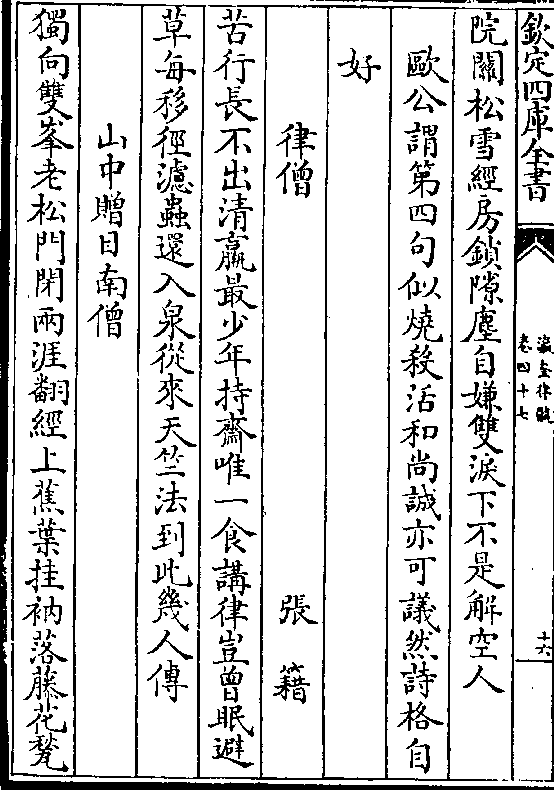 欽定四庫全書
瀛奎律髓
卷四十七
十六
院關松雪經房鎖隙塵自嫌雙淚下不是解空人
歐公謂第四句似燒殺活和尚誠亦可議然詩格自
好
律僧 張籍
苦行長不出清羸最少年持齋唯一食講律豈曾眠避
草每移徑濾蟲還入泉從來天竺法到此幾人傳
山中贈日南僧
獨向雙峯老松門閉兩涯翻經上蕉葉挂衲落藤花甃